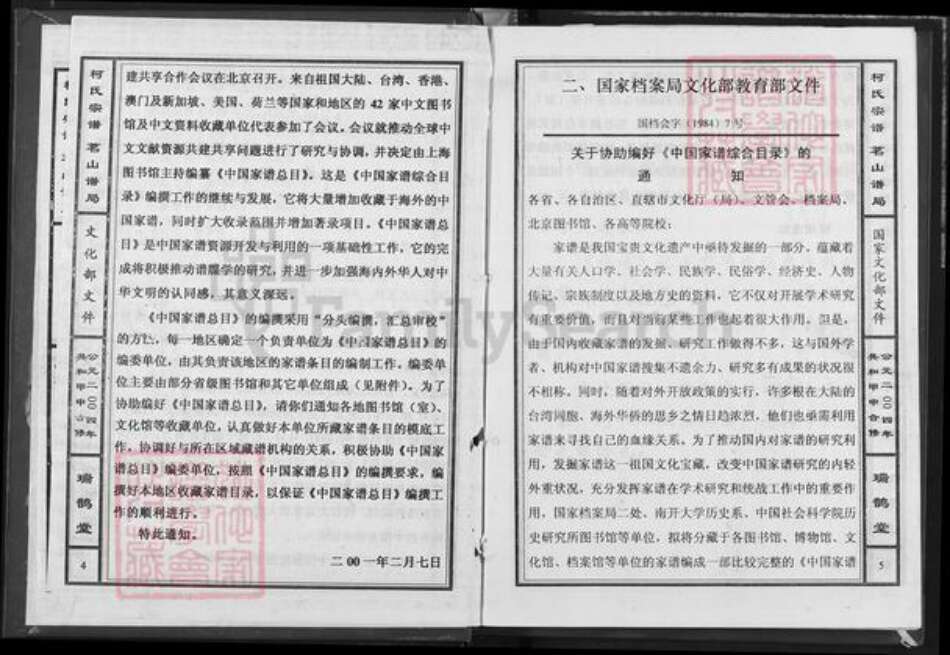 柯氏宗谱 茗山谱局
文化部文件
公元二00四年
共和甲申合修
瑞鹤堂
4
建共享合作会议在北京召开。来自祖国大陆、台湾、香港、
澳门及新加坡、美国、荷兰等国家和地区的 42 家中文图书
馆及中文资料收藏单位代表参加了会议。会议就推动全球中
文文献资源共建共享问题进行了研究与协调，并决定由上海
图书馆主持编纂《中国家谱总目》。这是《中国家谱综合目
录》编撰工作的继续与发展，它将大量增加收藏于海外的中
国家谱，同时扩大收录范围并增加著录项目。《中国家谱总
目》是中国家谱资源开发与利用的一项基础性工作，它的完
成将积极推动谱牒学的研究，并进一步加强海内外华人对中
华文明的认同感，其意义深远。
《中国家谱总目》的编撰采用“分头编撰，汇总审校”
的方式，每一地区确定一个负责单位为《中国家谱总目》的
编委单位，由其负责该地区的家谱条目的编制工作。编委单
位主要由部分省级图书馆和其它单位组成（见附件）。为了
协助编好《中国家谱总目》，请你们通知各地图书馆（室）、
文化馆等收藏单位，认真做好本单位所藏家谱条目的模底工
作，协调好与所在区域藏谱机构的关系，积极协助《中国家
谱总目》编委单位，按照《中国家谱总目》的编撰要求，编
撰好本地区收藏家谱目录，以保证《中国家谱总目》编撰工
作的顺利进行。
特此通知。
二 00 一年二月七日
二、国家档案局文化部教育部文件
国档会字（1984）7 号
关于协助编好《中国家谱综合目录》的
通 知
各省、各自治区、直辖市文化厅（局）、文管会、档案局、
北京图书馆、各高等院校：
家谱是我国宝贵文化遗产中亟待发掘的一部分，蕴藏着
大量有关人口学、社会学、民族学、民俗学、经济史、人物
传记、宗族制度以及地方史的资料，它不仅对开展学术研究
有重要价值，而且对当前某些工作也起着很大作用。但是，
由于国内收藏家谱的发掘、研究工作做得不多，这与国外学
者、机构对中国家谱搜集不遗余力、研究多有成果的状况很
不相称。同时，随着对外开放政策的实行，许多根在大陆的
台湾同胞、海外华侨的思乡之情日趋浓烈，他们也亟需利用
家谱来寻找自己的血缘关系。为了推动国内对家谱的研究利
用，发掘家谱这一祖国文化宝藏，改变中国家谱研究的内轻
外重状况，充分发挥家谱在学术研究和统战工作中的重要作
用，国家档案局二处、南开大学历史系、中国社会科学院历
史研究所图书馆等单位，拟将分藏于各图书馆、博物馆、文
化馆、档案馆等单位的家谱编成一部比较完整的《中国家谱
柯氏宗谱 茗山谱局
国家文化部文件
公元二00四年
共和甲申合修
瑞鹤堂
5
FamilySearch